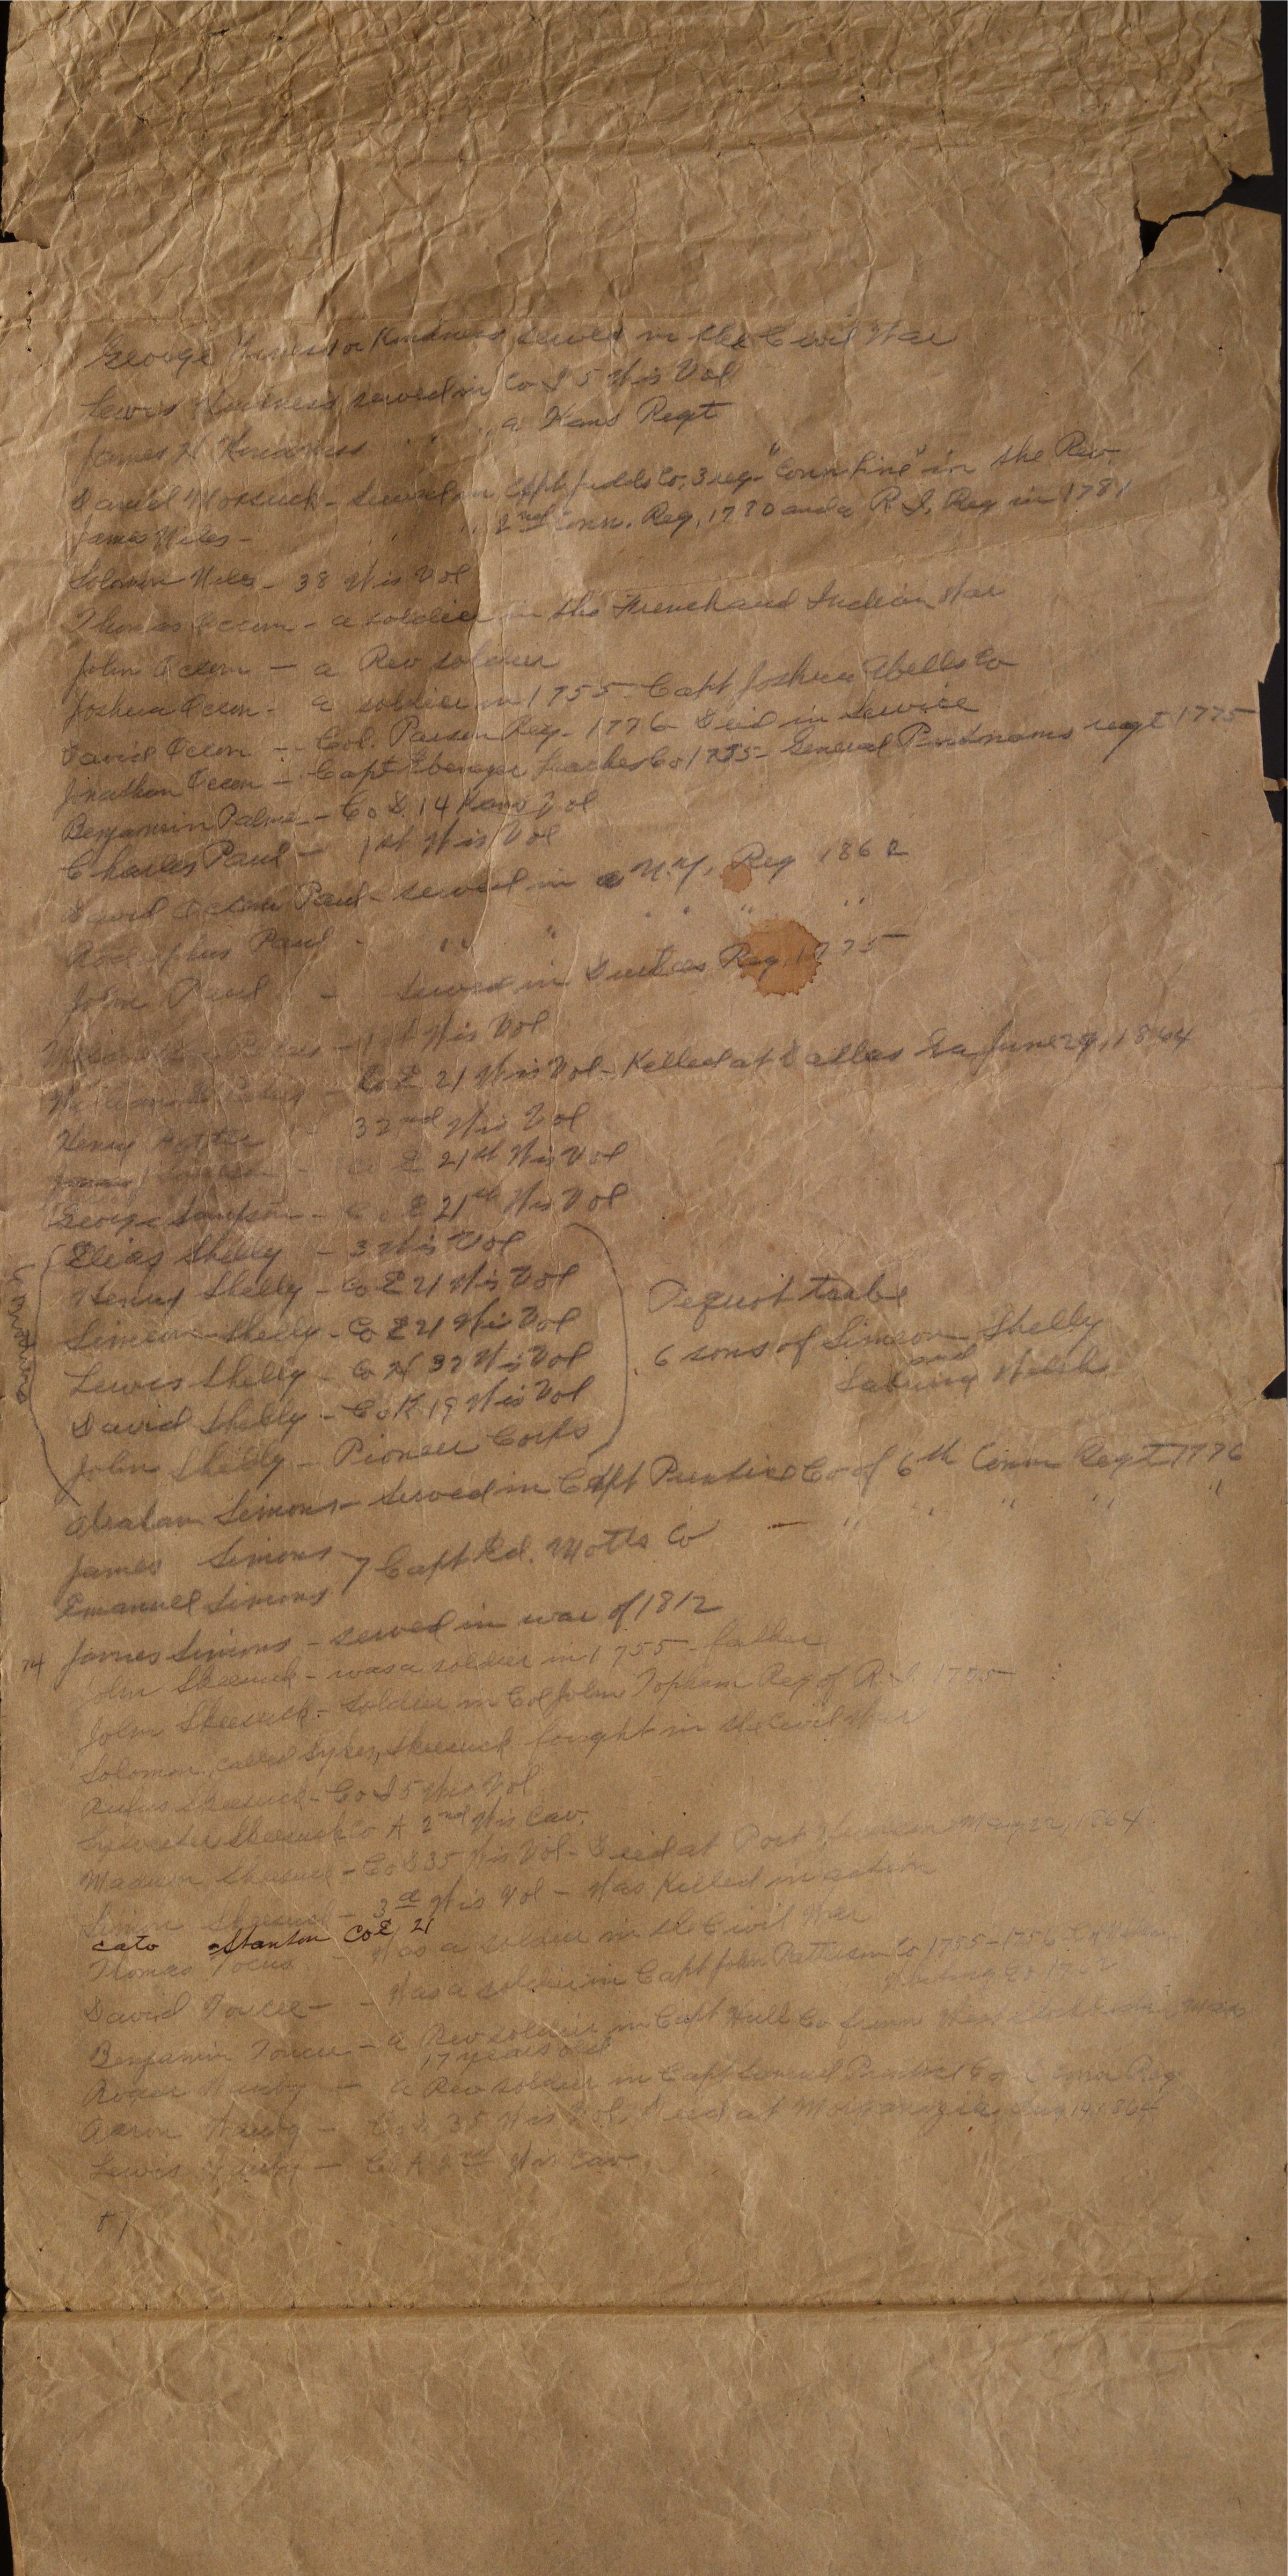 George Kindness served in the Civil War
Lewis Kindness served in Co I 5 Wis Vol
James H Kindness " " a Kans Regt
Daniel Mossuck - Served in Capt Judds Co, 3 reg. "Conn Line" in the Rev.
James Niles - " 2nd Conn. Reg, 1780 and a R. I. Reg in 1781
Solomon Niles - 38 Wis Vol
Thomas Occum - a soldier in the French and Indian War
John Occum - a Rev soldier
Joshua Occum - a soldier in 1755 - Capt Joshua Abells Co
David Occum - Col. Parson Reg. 1776 Died in Service
Jonathan Occum - Capt Ebenezer Leaches Co 1755 - General Putnams regt 1775
Benjamin Palmer - Co 14 Kans Vol
Charles Paul - 1st Wis Vol
David Occum Paul - served in a N.Y. Reg 1862
Rodolphus Paul - " " " " " "
John Paul - Served in Reg. 1775
- 1st Wis Vol
William - Co E 21 Wis Vol - Killed at Dallas Ga June 29, 1864
Henry Potter - 32nd Wis Vol
James - Co E 21st Wis Vol
George Sampson - Co E 21st Wis Vol
Elias Shelly - 3 Wis Vol
Henry Shelly - Co E 21 Wis Vol
Simeon Shelly - Co E 21 Wis Vol
Lewis Shelly - Co H 32 Wis Vol
David Shelly - Co K 19 Wis Vol
John Shelly - Pioneer Corps
Pequot tribe
6 sons of Simeon Shelly
and
Welch
Abraham Simons - Served in Capt Prentice Co of 6th Conn Regt 1776
James Simons - " " " "
Emanuel Simons 7 Capt Ed. Motts Co
James Simons - served in war of 1812
74
John Skeesuck - was a soldier in 1755 - father
John Skeesuck - Soldier in Col John Topham Reg of R. I. 1775
Solomon, called Sykes, Skeesuck fought in the Civil War
Rufus Skeesuck - Co I 5 Wis Vol
Sylvester Skeesuck Co A 2nd Wis Cav.
Skeesuck - Co 35 Wis Vol - Died at Port May 22, 1864
Skeesuck - 3d Wis Vol - Was Killed in action
Cato Stanton Co E 21
Thomas Tocus - Was a soldier in the Civil War
David Toucee - Was a soldier in Capt John Patterson Co 1755-1756
Benjamin Toucee - a Rev soldier in Capt Hull Co from
17 years old
Roger Wauby - a Rev soldier in Capt Samuel Prentice Co Conn Reg
Aaron Wauby - Co 35 Wis Vol. Died at Morganzia, Aug 14, 1864
Lewis Wauby - Co A 2nd Wis Cav.